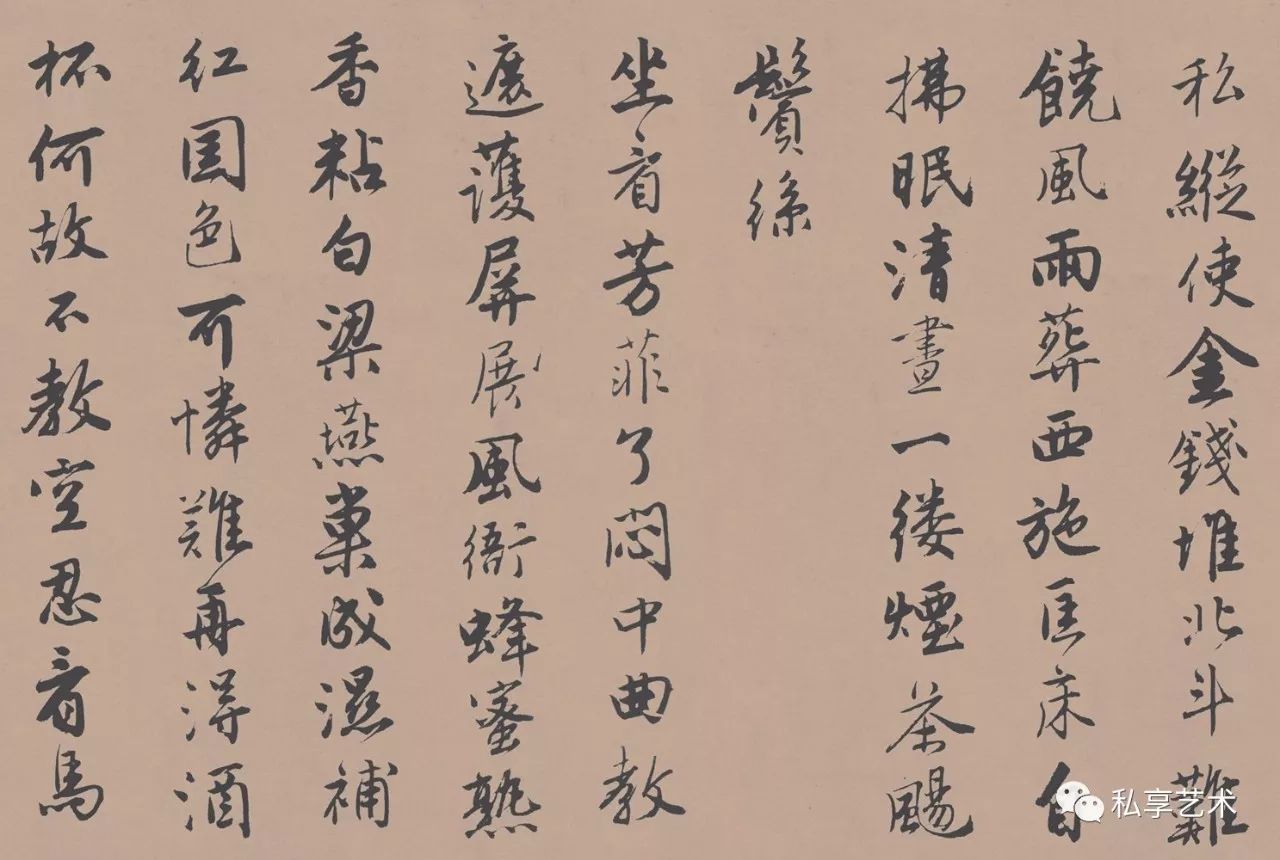 私縱使金錢堆北斗難
饒風雨葬西施匡床自
拂眠清晝一縷煙茶颺
鬢絲
坐看芳菲了悶中曲教
遮護屏展風衙蜂蜜熟
香粘白梁燕巢成濕補
紅国色可憐難再得酒
杯何故不教空忍看馬
私享艺术